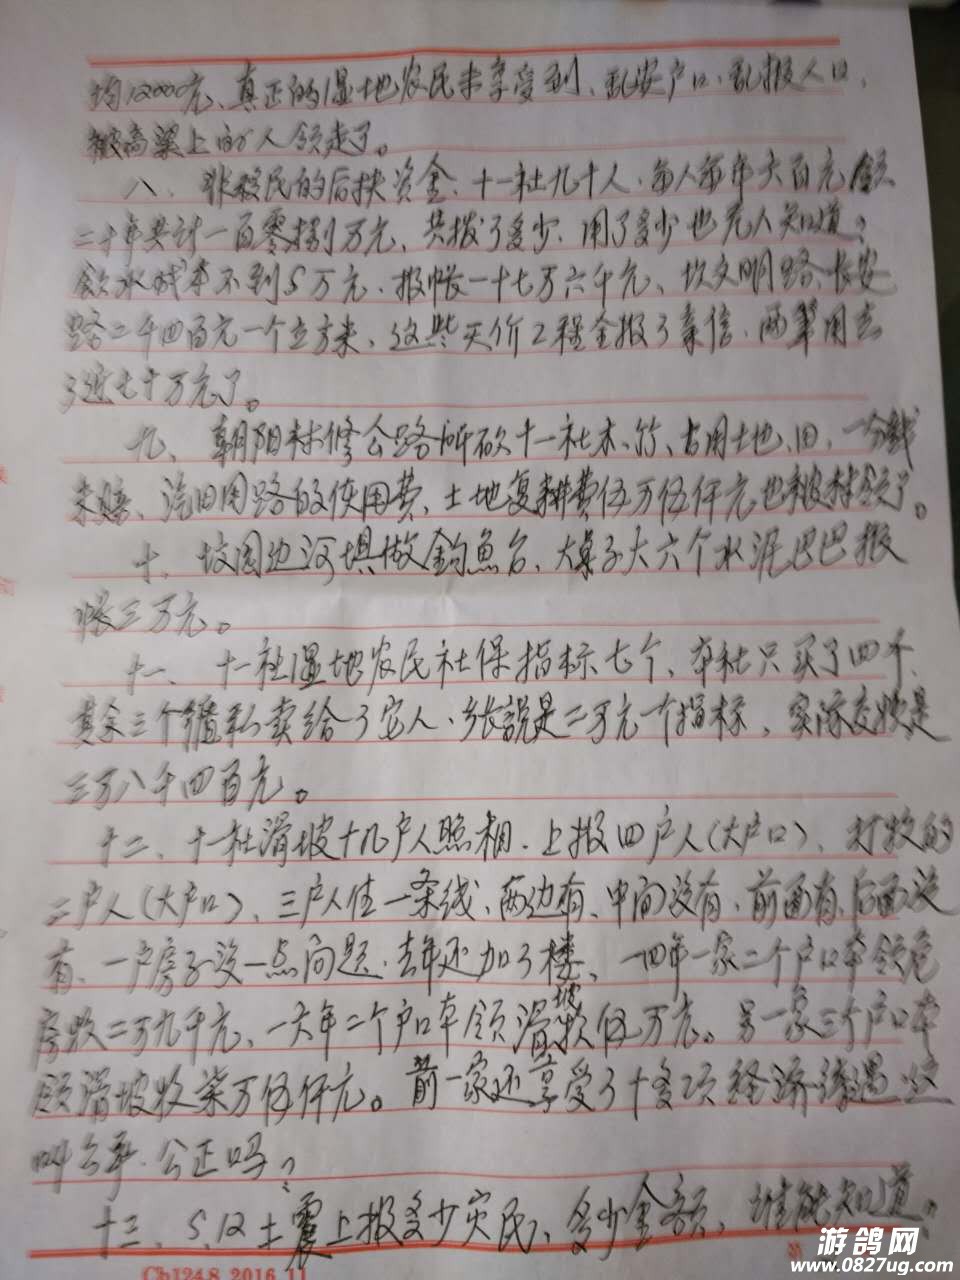 约12000元、真正的湿地农民未享受到、乱安户口、乱报人口,
被高梁上的人领走了。
八、非移民的后扶资金、十一社九十人、每人每年六百元、领
二十年共计一百零捌万元、共拨了多少、用了多少也无人知道。
饮水成本不到5万元、报帐一十七万六千元、坎文明路、长安
路二千四百元一个立方米、这些天价工程全报了 两 用去
了近七十万元了。
九、朝阳村修公路所砍十一社木、竹、占用土地、田、一分钱
未赔、 路的使用费、土地复耕费伍万伍仟元也被村领了。
十、坟园边河堤做钓魚台、大桌子大六个水泥巴巴报
帐三万元。
十一、十一社湿地农民社保指标七个、本社只买了四个、
其余三个 私卖给了它人、 說是二万元一个指标、实际交款是
三万八千四百元。
十二、十一社滑坡十几户人照相、上报四户人(大户口)、打款的
二户人(大户口)、三户人住一条线、两边有、中间没有、前面有、后面没
有、一户房子没一点问题、去年还加了楼、一四年一家二个户口本领危
房款二万九千元、一六年二个户口本领滑坡款伍万元。另一家三个户口本
领滑坡款柒万伍仟元。前一家还享受了十多项经济待遇、这
叫公平、公正吗?
十三、5.12 震上报多少灾民、多少金额、谁能知道。
第
Ch1248 2016.11
游鸽网
www.0827ug.com